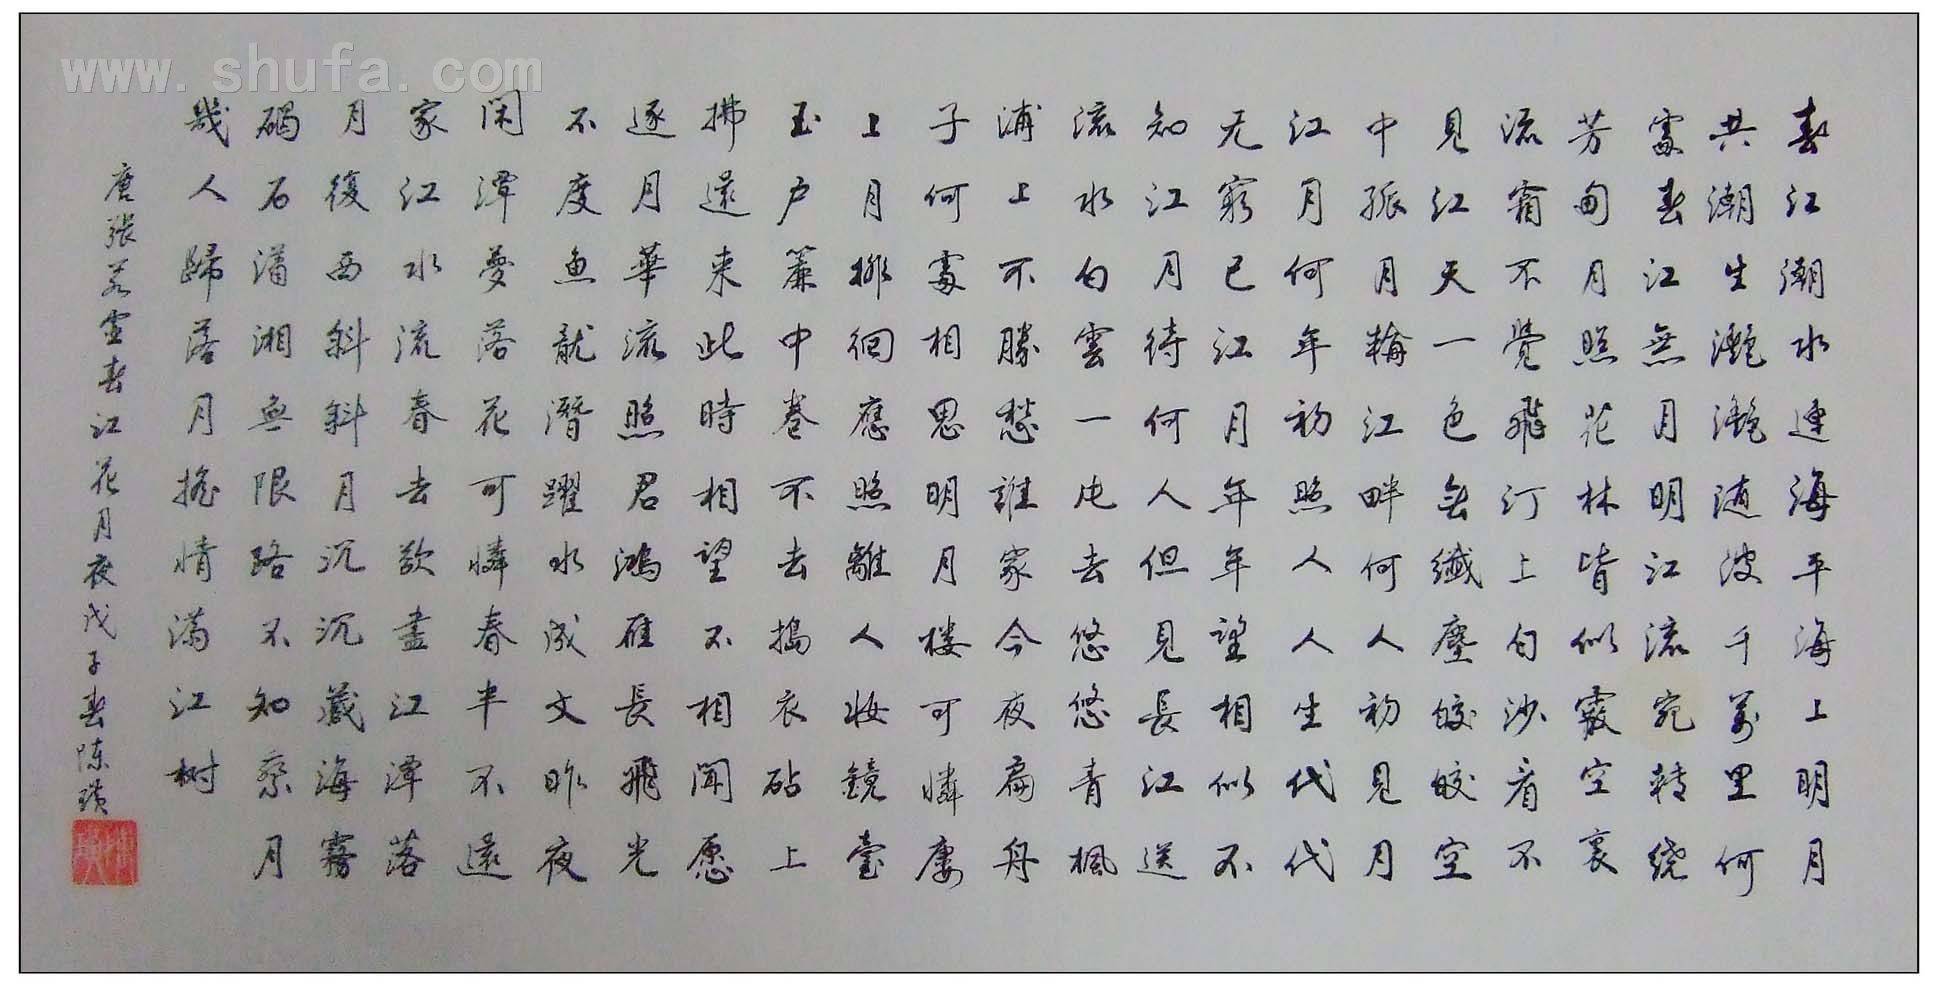 www.shufa.com
春江潮水連海平海上明月
共潮生灩灩随波千萬里何
處春江無月明江流宛轉绕
芳甸月照花林皆似霰空裏
流霜不覺飛汀上白沙看不
見江天一色無纖塵皎皎空
中孤月輪江畔何人初見月
江月何年初照人人生代代
无窮已江月年年望相似不
知江月待何人但見長江送
流水白雲一片去悠悠青楓
浦上不勝愁誰家今夜扁舟
子何處相思明月楼可憐廔
上月排徊應照離人妆鏡臺
玉户簾中卷不去搗衣砧上
拂還来此時相望不相聞愿
逐月華流照君鴻雁長飛光
不度魚龍潛躍水成文昨夜
闲潭夢落花可憐春半不還
家江水流春去欲盡江潭落
月復西斜斜月沉沉藏海霧
碣石瀟湘無限路不知乘月
幾人歸落月摇情满江树
唐張若虚春江花月夜戊子春陈